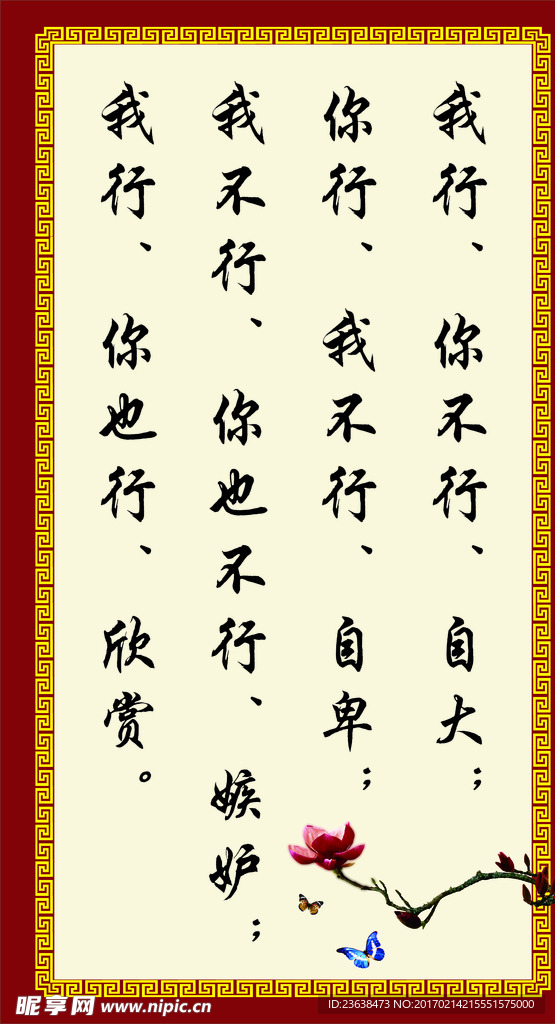 我行、你不行、自大；
你行、我不行、自卑；
我不行、你也不行、嫉妒；
我行、你也行、欣赏。
昵享网 www.nipic.cn
ID:23638473 NO:20170214215551575000